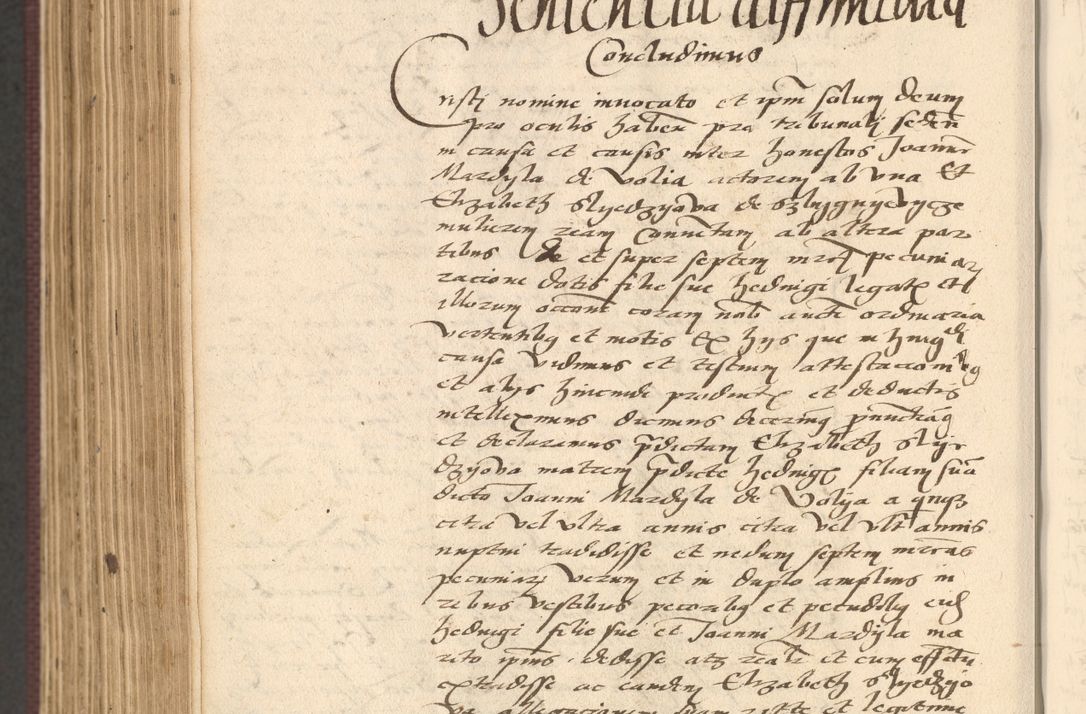 Sententia diffinitiva
Concludimus
Cristi nomine invocato et ipm solum deum
pro oculis haben pro tribunali seden
in causa et causis inter honestos Joannē
Mardyla de Volia actorem ab una Et
Elizabeth Slyedzyova de
mulierem ream Conventam ab altera par
tibus de et super septem mrcį pecuniar
racione dotis filie sue Hedvigi legate et
illorum occōne coram nob aucte ordinaria
vertentibq et motis Ex hys que in hmōi
causa vidimus et testium attestacionibq
et alys hincinde productis et deductis
intelleximus dicimus decernimq pronunciamq
et declaramus pdictam Elizabeth Slye
dzyova matrem pdicte Hedvigis filiam suā
dicto Joanni Mardyla de Volya a qnqz
citra vel ultra annis citra vel ult annis
nuptui tradidisse et nedum septem mrcas
pecuniarz verum et in duplo amplius in
rebus vestibus pecoribq et pecudibq eid
Hedvigi filie sue et Joanni Mardyla ma
rito ipius dedisse atqz realr et cum effectu
extradisse ac eandem Elizabeth Slyedzyo
va suam ritte et legitime